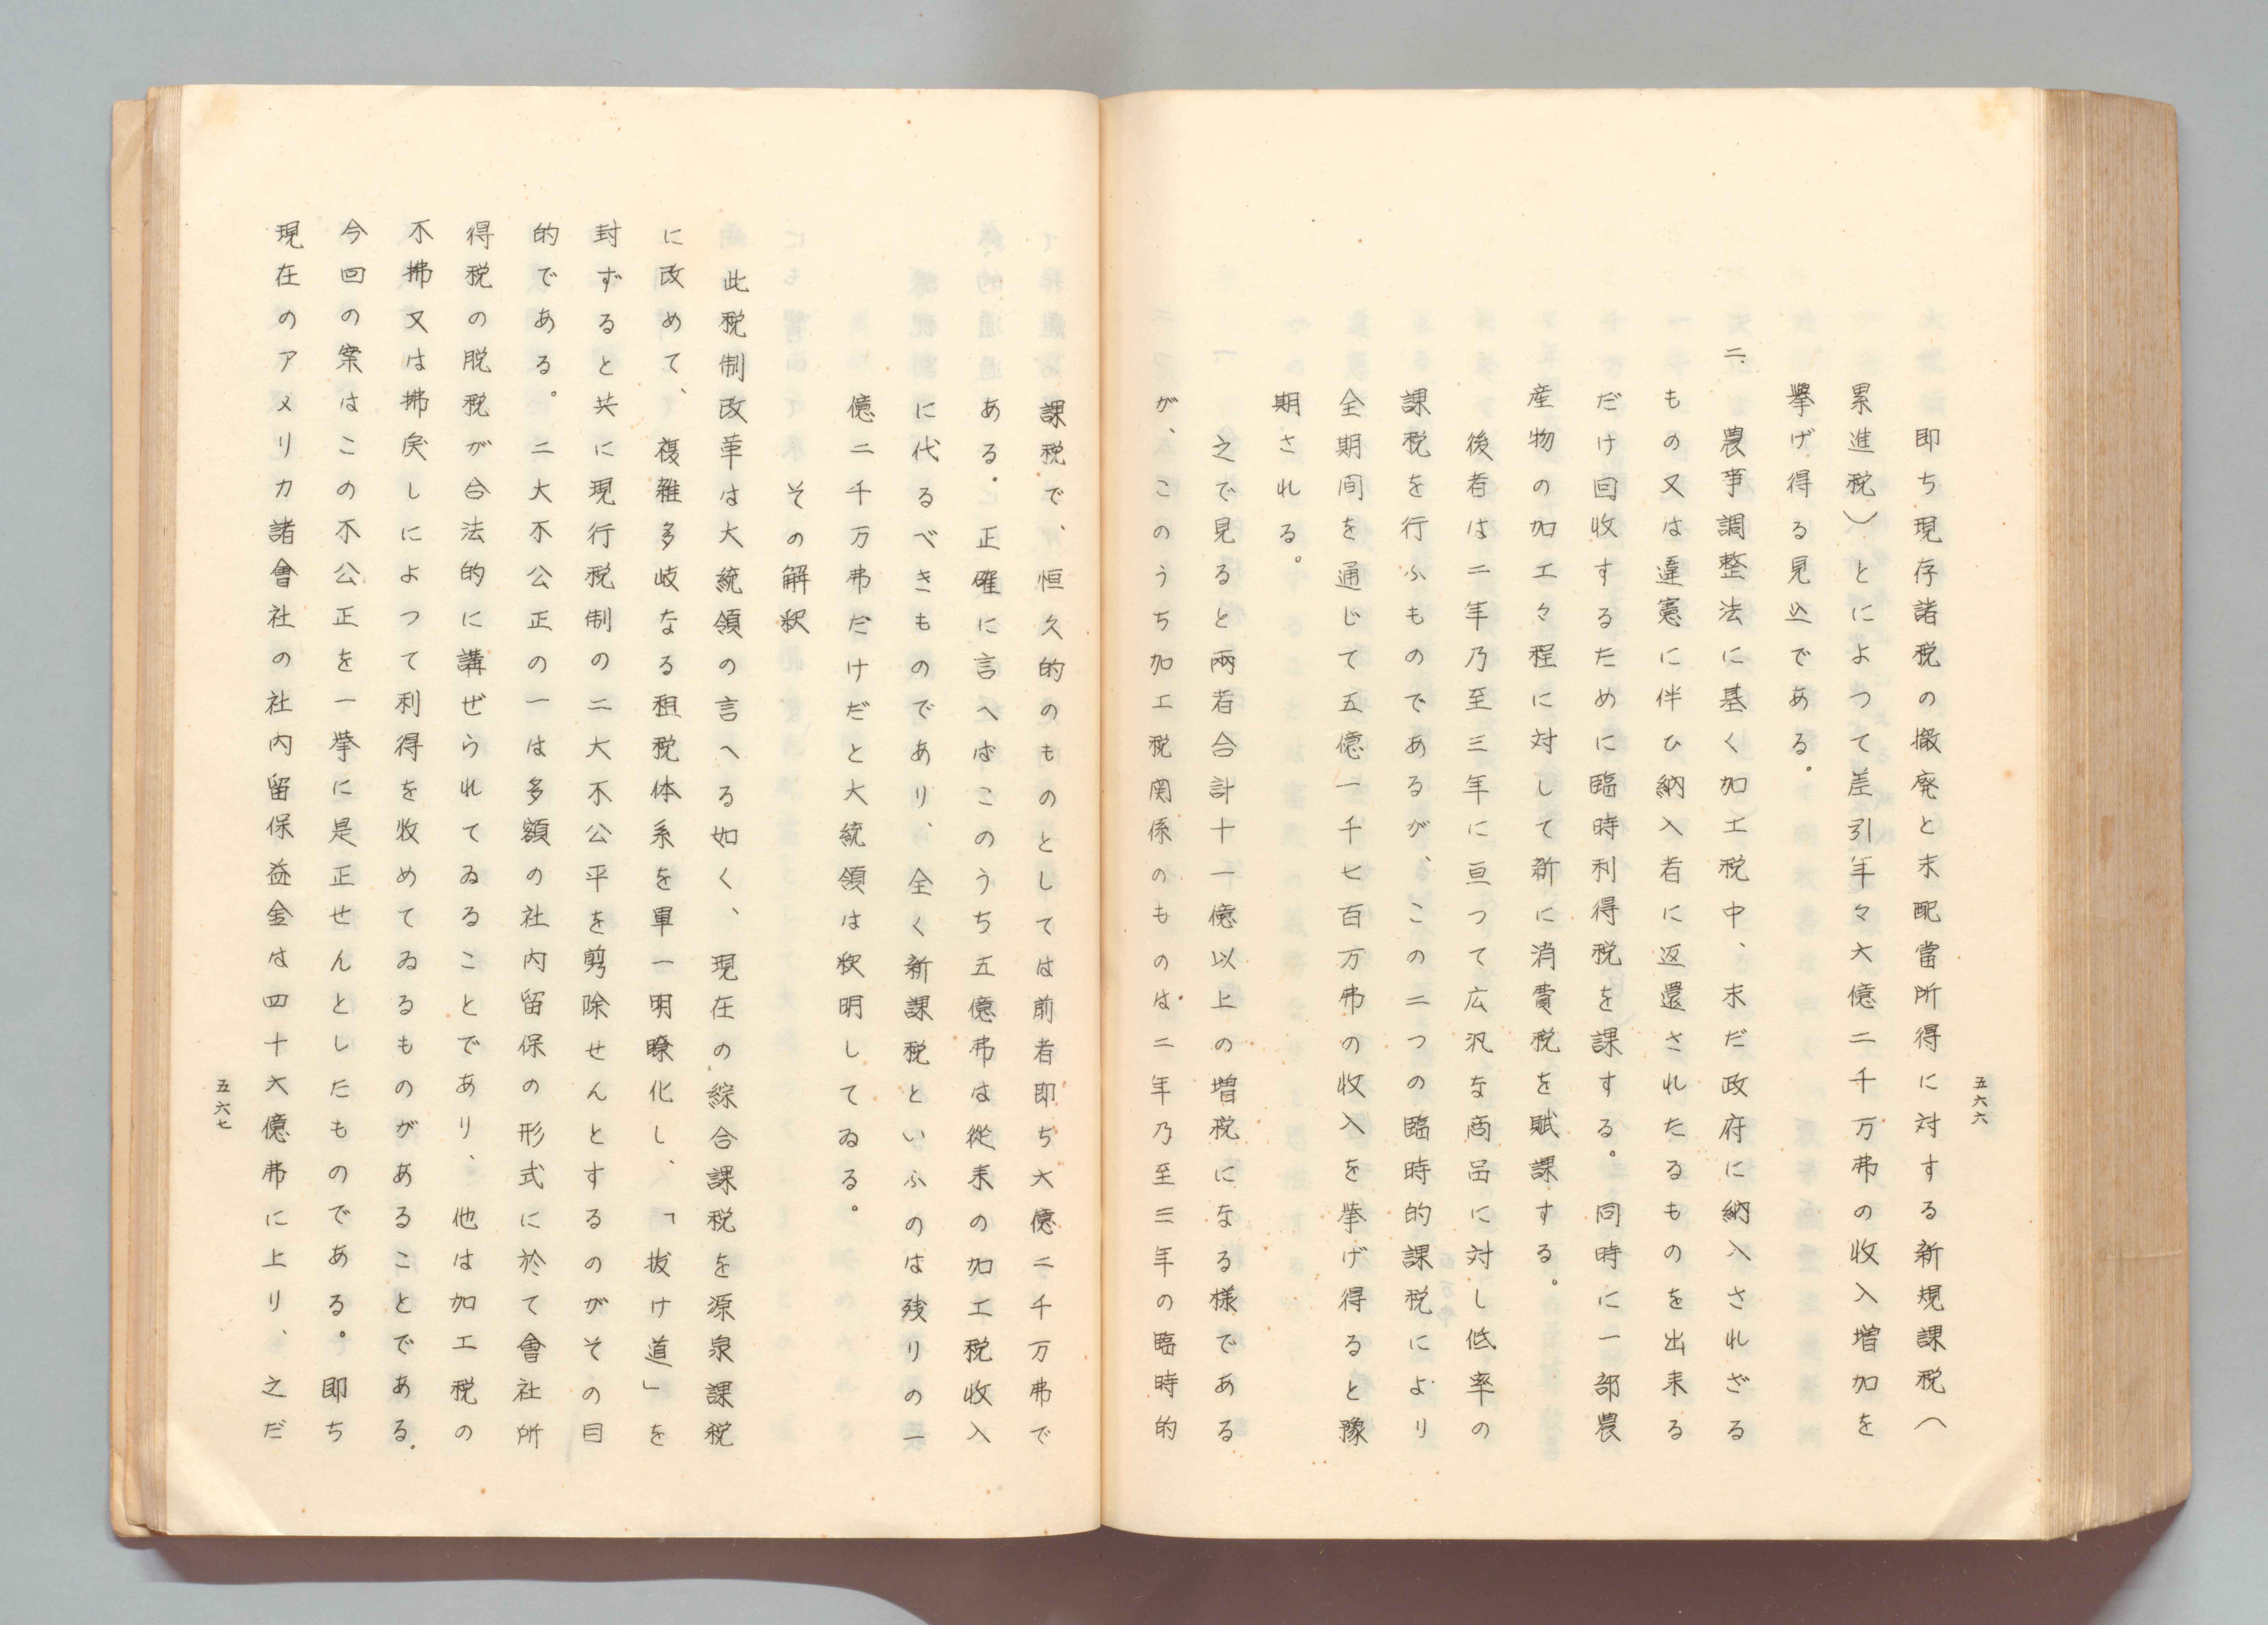 五六六
即ち現存諸税の撤廃と未配當所得に対する新規課税（
累進税）とによつて差引年々六億二千万弗の收入増加を
擧げ得る見込である。
二、農事調整法に基く加工税中、未だ政府に納入されざる
もの又は違憲に伴ひ納入者に返還されたるものを出来る
だけ回收するために臨時利得税を課する。同時に一部農
産物の加工々程に対して新に消費税を賦課する。
後者は二年乃至三年に亘つて広汎な商品に対し低率の
課税を行ふものであるが、この二つの臨時的課税により
全期间を通じて五億一千七百万弗の收入を挙げ得ると豫
期される。
之で見ると兩者合計十一億以上の増税になる様である
が、このうち加工税関係のものは二年乃至三年の臨時的
課税で、恒久的のものとしては前者即ち六億二千万弗で
ある。正確に言へばこのうち五億弗は從来の加工税收入
に代るべきものであり、全く新課税といふのは残りの一
億二千万弗だけだと大統領は釈明してゐる。
その解釈
此税制改革は大統領の言へる如く、現在の綜合課税を源泉課税
に改めて、複雜多岐なる租税体系を單一明瞭化し、「拔け道」を
封ずると共に現行税制の二大不公平を剪除せんとするのがその目
的である。二大不公正の一は多額の社内留保の形式に於て會社所
得税の脱税が合法的に講ぜられてゐることであり、他は加工税の
不拂又は拂戻しによつて利得を收めてゐるものがあることである。
今回の案はこの不公正を一挙に是正せんとしたものである。即ち
現在のアメリカ諸會社の社内留保益金は四十六億弗に上り、之だ
五六七